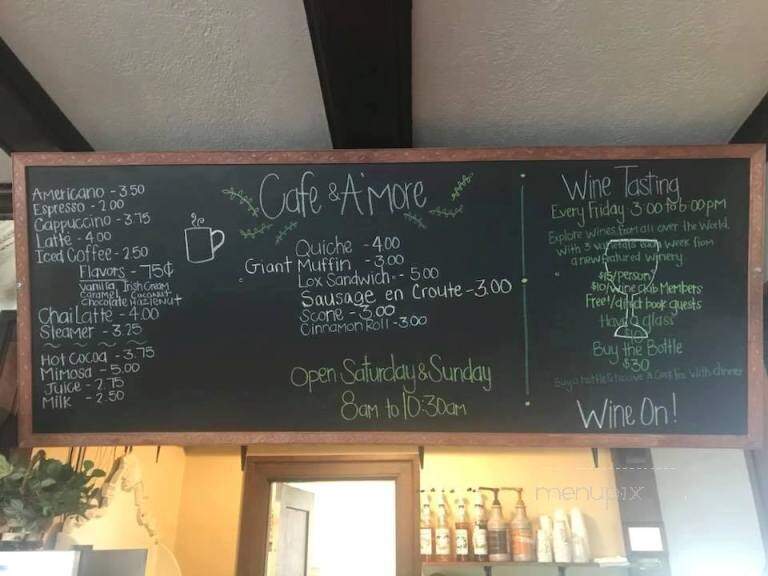 Americano - 3.50
Espresso - 2.00
Cappuccino - 3.75
Latte - 4.00
Iced Coffee - 2.50
Flavors - 75¢
Vanilla Irish Cream
Caramel Coconut
Chocolate Hazelnut
Chai Latte - 4.00
Steamer - 3.25
Hot Cocoa - 3.75
Mimosa - 5.00
Juice - 2.75
Milk - 2.50
Cafe & A'more
Quiche - 4.00
Giant Muffin - 3.00
Lox Sandwich - 5.00
Sausage en Croute - 3.00
Scone - 3.00
Cinnamon Roll - 3.00
Open Saturday & Sunday
8am to 10:30am
Wine Tasting
Every Friday 3:00 to 6:00 pm
Explore wines from all over the World,
with 3 varietals each week from
a new featured winery
$15/person
$10/wine club Members
Free!/direct book guests
Have a glass
$10
Buy the Bottle
$30
Buy a bottle to with dinner
Wine On!
menupix